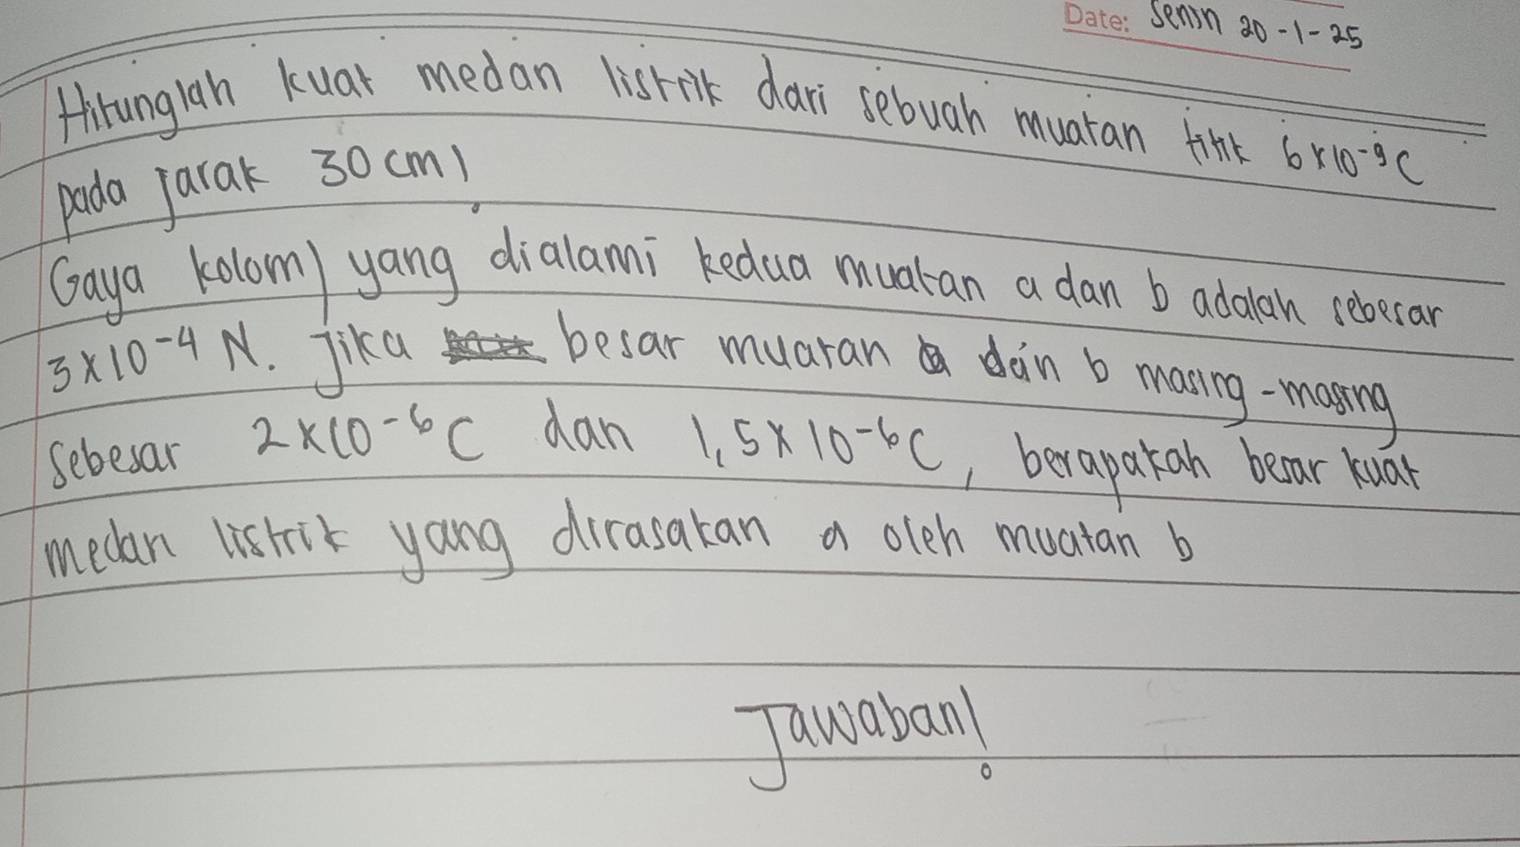 Date: Senin 20-1-25
Hitunglah kuat medan listrik dari sebuah muatan titik 6×10⁻⁹C
pada jarak 30 cm!
Gaya kolomb yang dialami kedua muatan a dan b adalah sebesar
3×10⁻⁴ N. Jika besar muatan a dan b masing-masing
sebesar 2×10⁻⁶C dan 1,5×10⁻⁶C, berapakah besar kuat
medan listrik yang dirasakan a oleh muatan b
Jawaban!